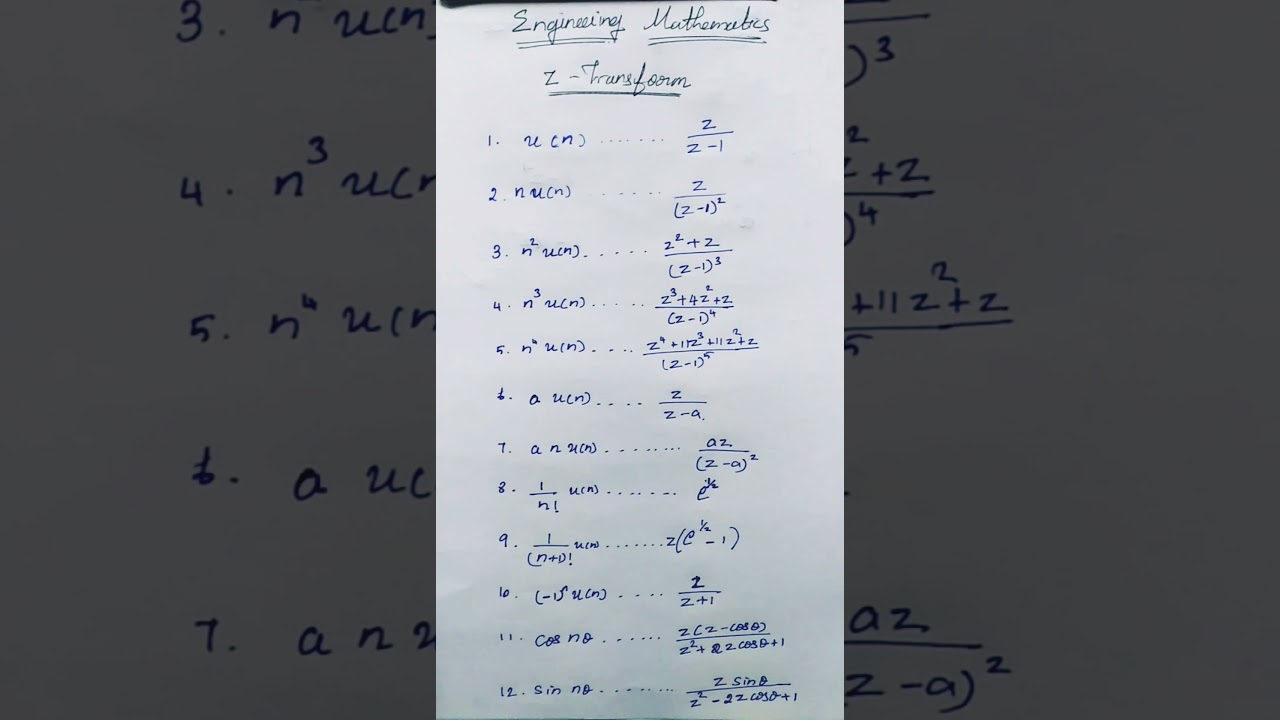 Engineeing Mathematics
Z-Transform
1. u(n) ....... z/(z-1)
2. n u(n) ...... z/(z-1)²
3. n² u(n) ..... (z²+z)/(z-1)³
4. n³ u(n) ...... (z³+4z²+z)/(z-1)⁴
5. n⁴ u(n) .... (z⁴+11z³+11z²+z)/(z-1)⁵
6. a u(n) .... z/(z-a)
7. a n u(n) ........ az/(z-a)²
8. 1/n! u(n) ....... e^(1/z)
9. 1/(n+1)! u(n) ....... z(e^(1/z)-1)
10. (-1)ⁿ u(n) ..... z/(z+1)
11. cos nθ ...... z(z-cosθ)/(z²+2zcosθ+1)
12. sin nθ ........ z sinθ/(z²-2zcosθ+1)
3. n² u(n)
)³
4. n³ u(n
z²+z
)⁴
5. n⁴ u(n
+11z²+z
5
6. a u(
7. a n u
az
(z-a)²